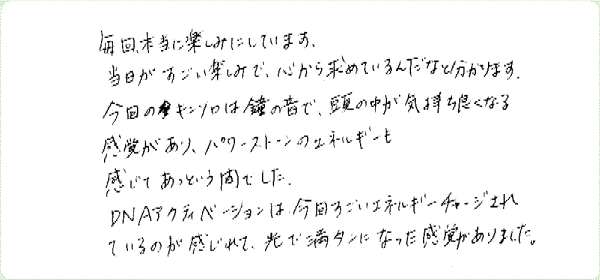 毎回、本当に楽しみにしています。
当日がすごい楽しみで、心から求めているんだなと分かります。
今回のキンソロは鐘の音で、頭の中が気持ち良くなる
感覚があり、パワーストーンのエネルギーも
感じてあっという間でした。
DNAアクティベーションは、今回すごいエネルギーチャージされ
ているのが感じれて、光で満タンになった感覚がありました。